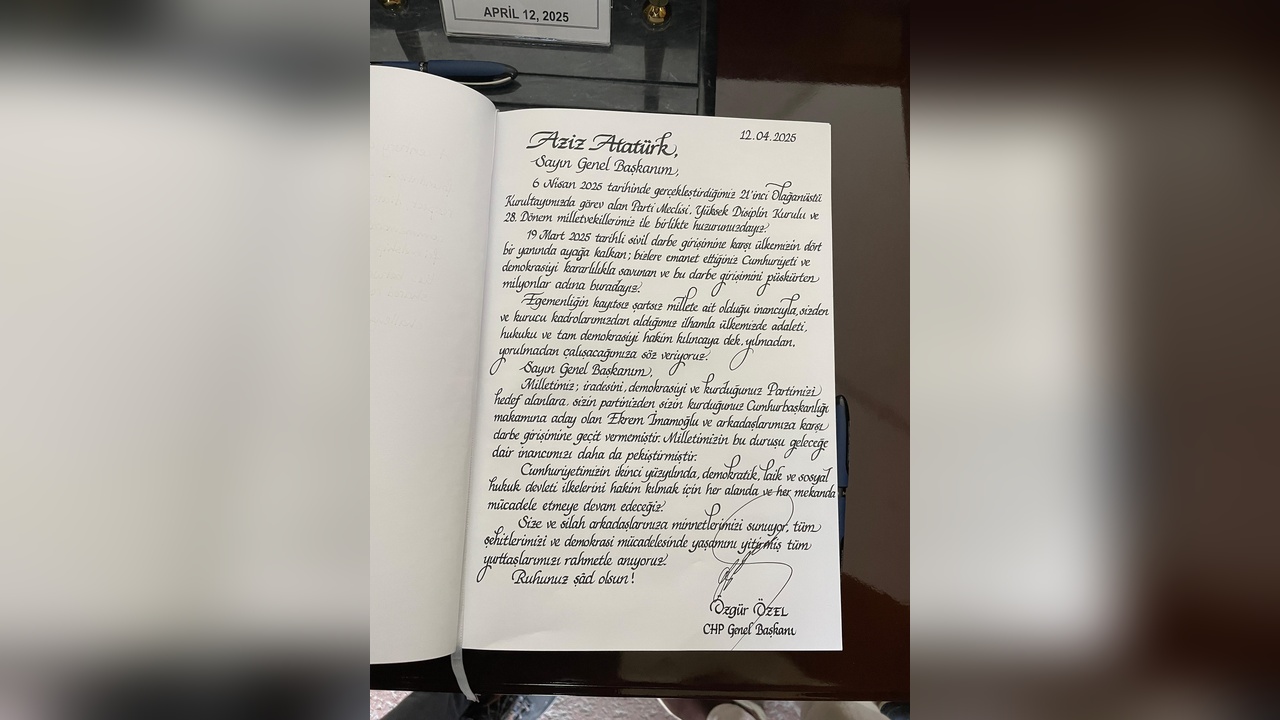 APRIL 12, 2025
12.04.2025
Aziz Atatürk,
Sayın Genel Başkanım,
6 Nisan 2025 tarihinde gerçekleştirdiğimiz 21'inci Olağanüstü
Kurultayımızda görev alan Parti Meclisi, Yüksek Disiplin Kurulu ve
28. Dönem milletvekillerimiz ile birlikte huzurunuzdayız.
19 Mart 2025 tarihli sivil darbe girişimine karşı ülkemizin dört
bir yanında ayağa kalkan; bizlere emanet ettiğiniz Cumhuriyeti ve
demokrasiyi kararlılıkla savunan ve bu darbe girişimini püskürten
milyonlar adına buradayız.
Egemenliğin kayıtsız şartsız millete ait olduğu inancıyla, sizden
ve kurucu kadrolarımızdan aldığımız ilhamla ülkemizde adaleti,
hukuku ve tam demokrasiyi hakim kılıncaya dek, yılmadan,
yorulmadan çalışacağımıza söz veriyoruz.
Sayın Genel Başkanım,
Milletimiz; iradesini, demokrasiyi ve kurduğunuz Partimizi
hedef alanlara, sizin partinizden sizin kurduğunuz Cumhurbaşkanlığı
makamına aday olan Ekrem İmamoğlu ve arkadaşlarımıza karşı
darbe girişimine geçit vermemiştir. Milletimizin bu duruşu geleceğe
dair inancımızı daha da pekiştirmiştir.
Cumhuriyetimizin ikinci yüzyılında, demokratik, laik ve sosyal
hukuk devleti ilkelerini hakim kılmak için her alanda ve her mekanda
mücadele etmeye devam edeceğiz.
Size ve silah arkadaşlarınıza minnetlerimizi sunuyor, tüm
şehitlerimizi ve demokrasi mücadelesinde yaşamını yitirmiş tüm
yurttaşlarımızı rahmetle anıyoruz.
Ruhunuz şâd olsun!
Özgür ÖZEL
CHP Genel Başkanı